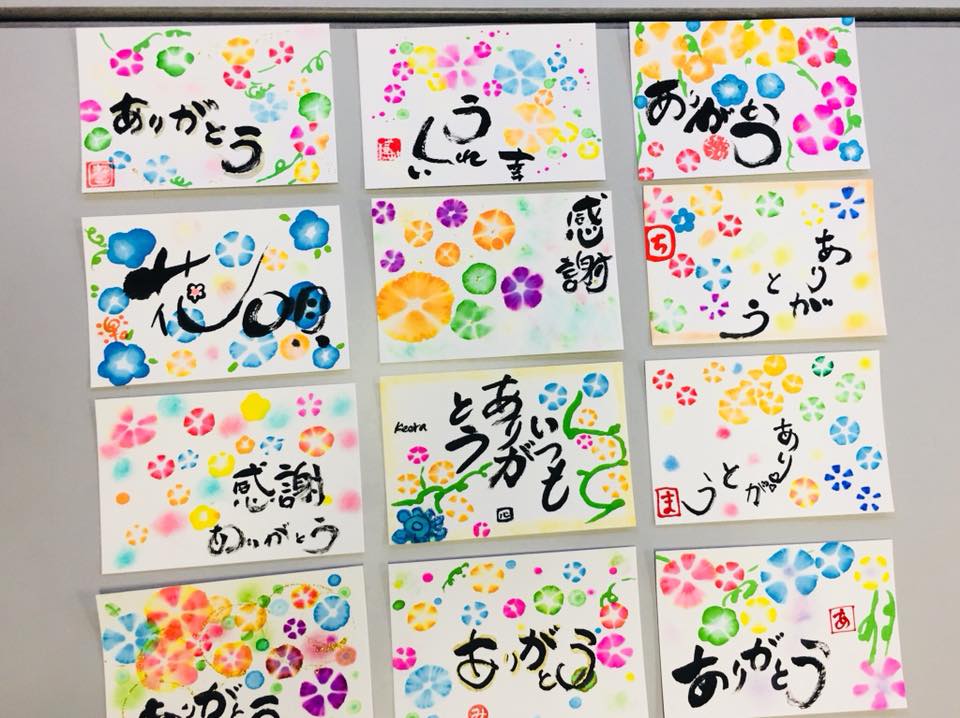 ありがとう
うれしい
幸
ありがとう
花
感謝
ち
ありがとう
感謝
ありがとう
いつも
ありが
とう
ま
ありがとう
ありがとう
ありがとう
み
あ
ありがとう